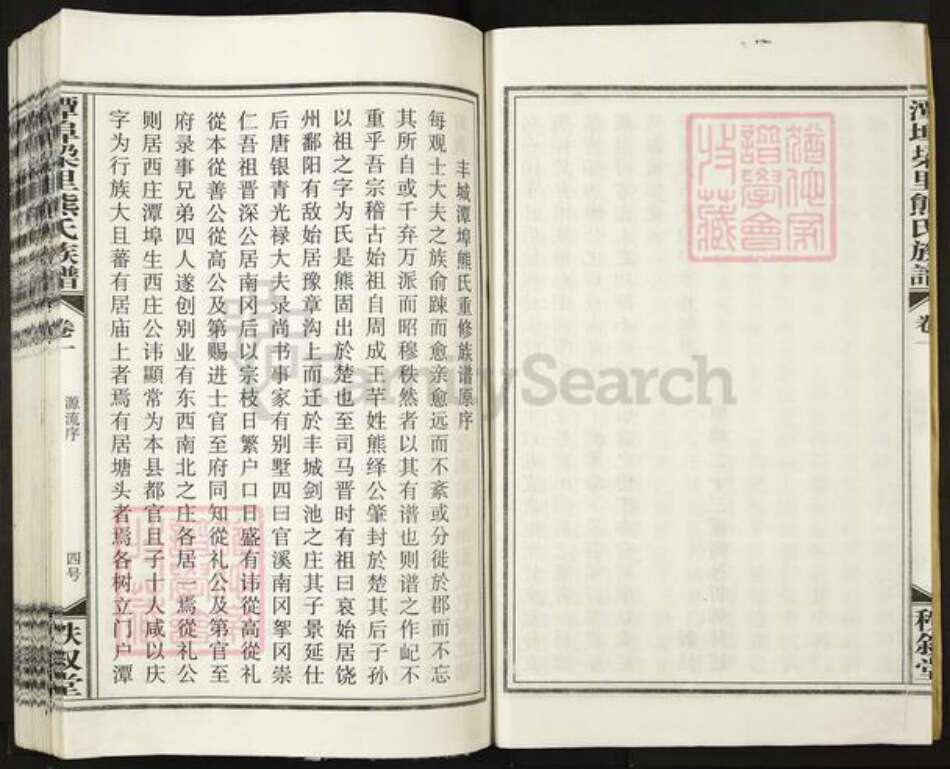 潭埠梁里熊氏族谱
卷一
秩叙堂
丰城潭埠熊氏重修族谱原序
每观士大夫之族俞踈而愈亲愈远而不紊或分徙於郡而不忘
其所自或千弃万派而昭穆秩然者以其有谱也则谱之作屺不
重乎吾宗稽古始祖自周成王芉姓熊绎公肇封於楚其后子孙
以祖之字为氏是熊固出於楚也至司马晋时有祖曰哀始居饶
州鄱阳有敌始居豫章沟上而迁於丰城剑池之庄其子景延仕
后唐银青光禄大夫录尚书事家有别墅四曰官溪南冈挐冈崇
仁吾祖晋深公居南冈后以宗枝日繁户口日盛有讳從高從礼
從本從善公從高公及第赐进士官至府同知從礼公及第官至
府录事兄弟四人遂创别业有东西南北之庄各居一焉從礼公
则居西庄潭埠生西庄公讳顯常为本县都官且子十人咸以庆
字为行族大且蕃有居庙上者焉有居塘头者焉各树立门户潭
潭埠梁里熊氏族谱
卷一
源流序
四号
秩叙堂
FamilySearch